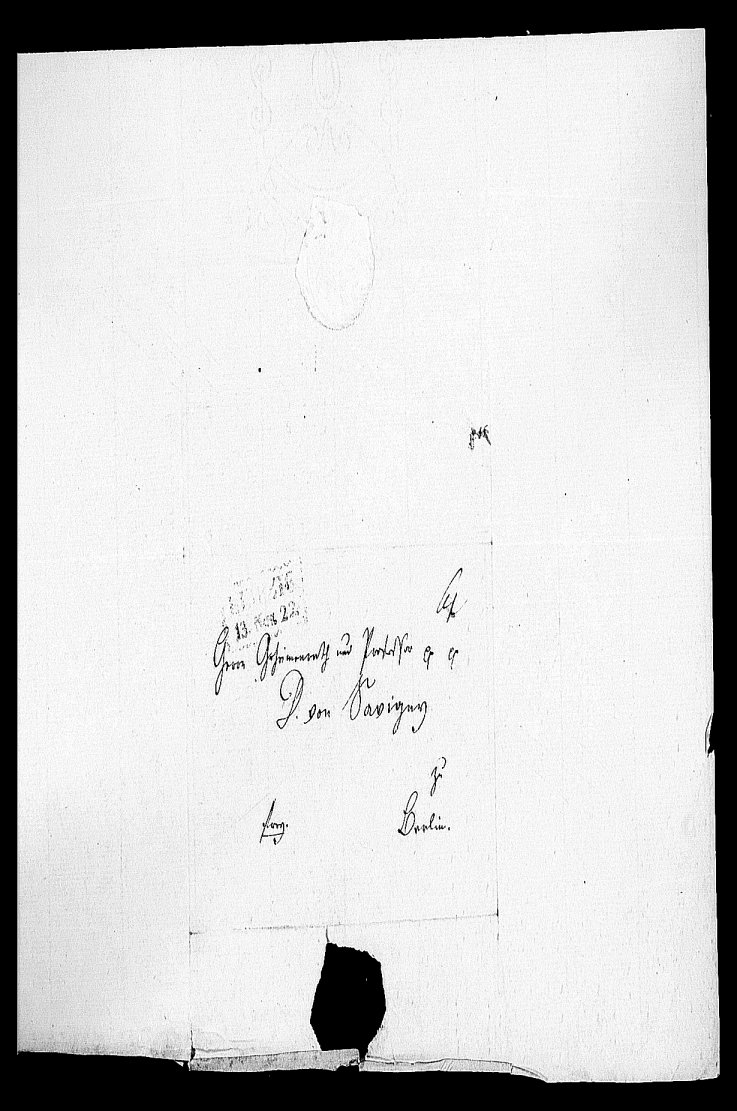 13. Nov. 22.
Herrn Geheimenrath und Professor
D. von Savigny
zu
frey. Berlin.